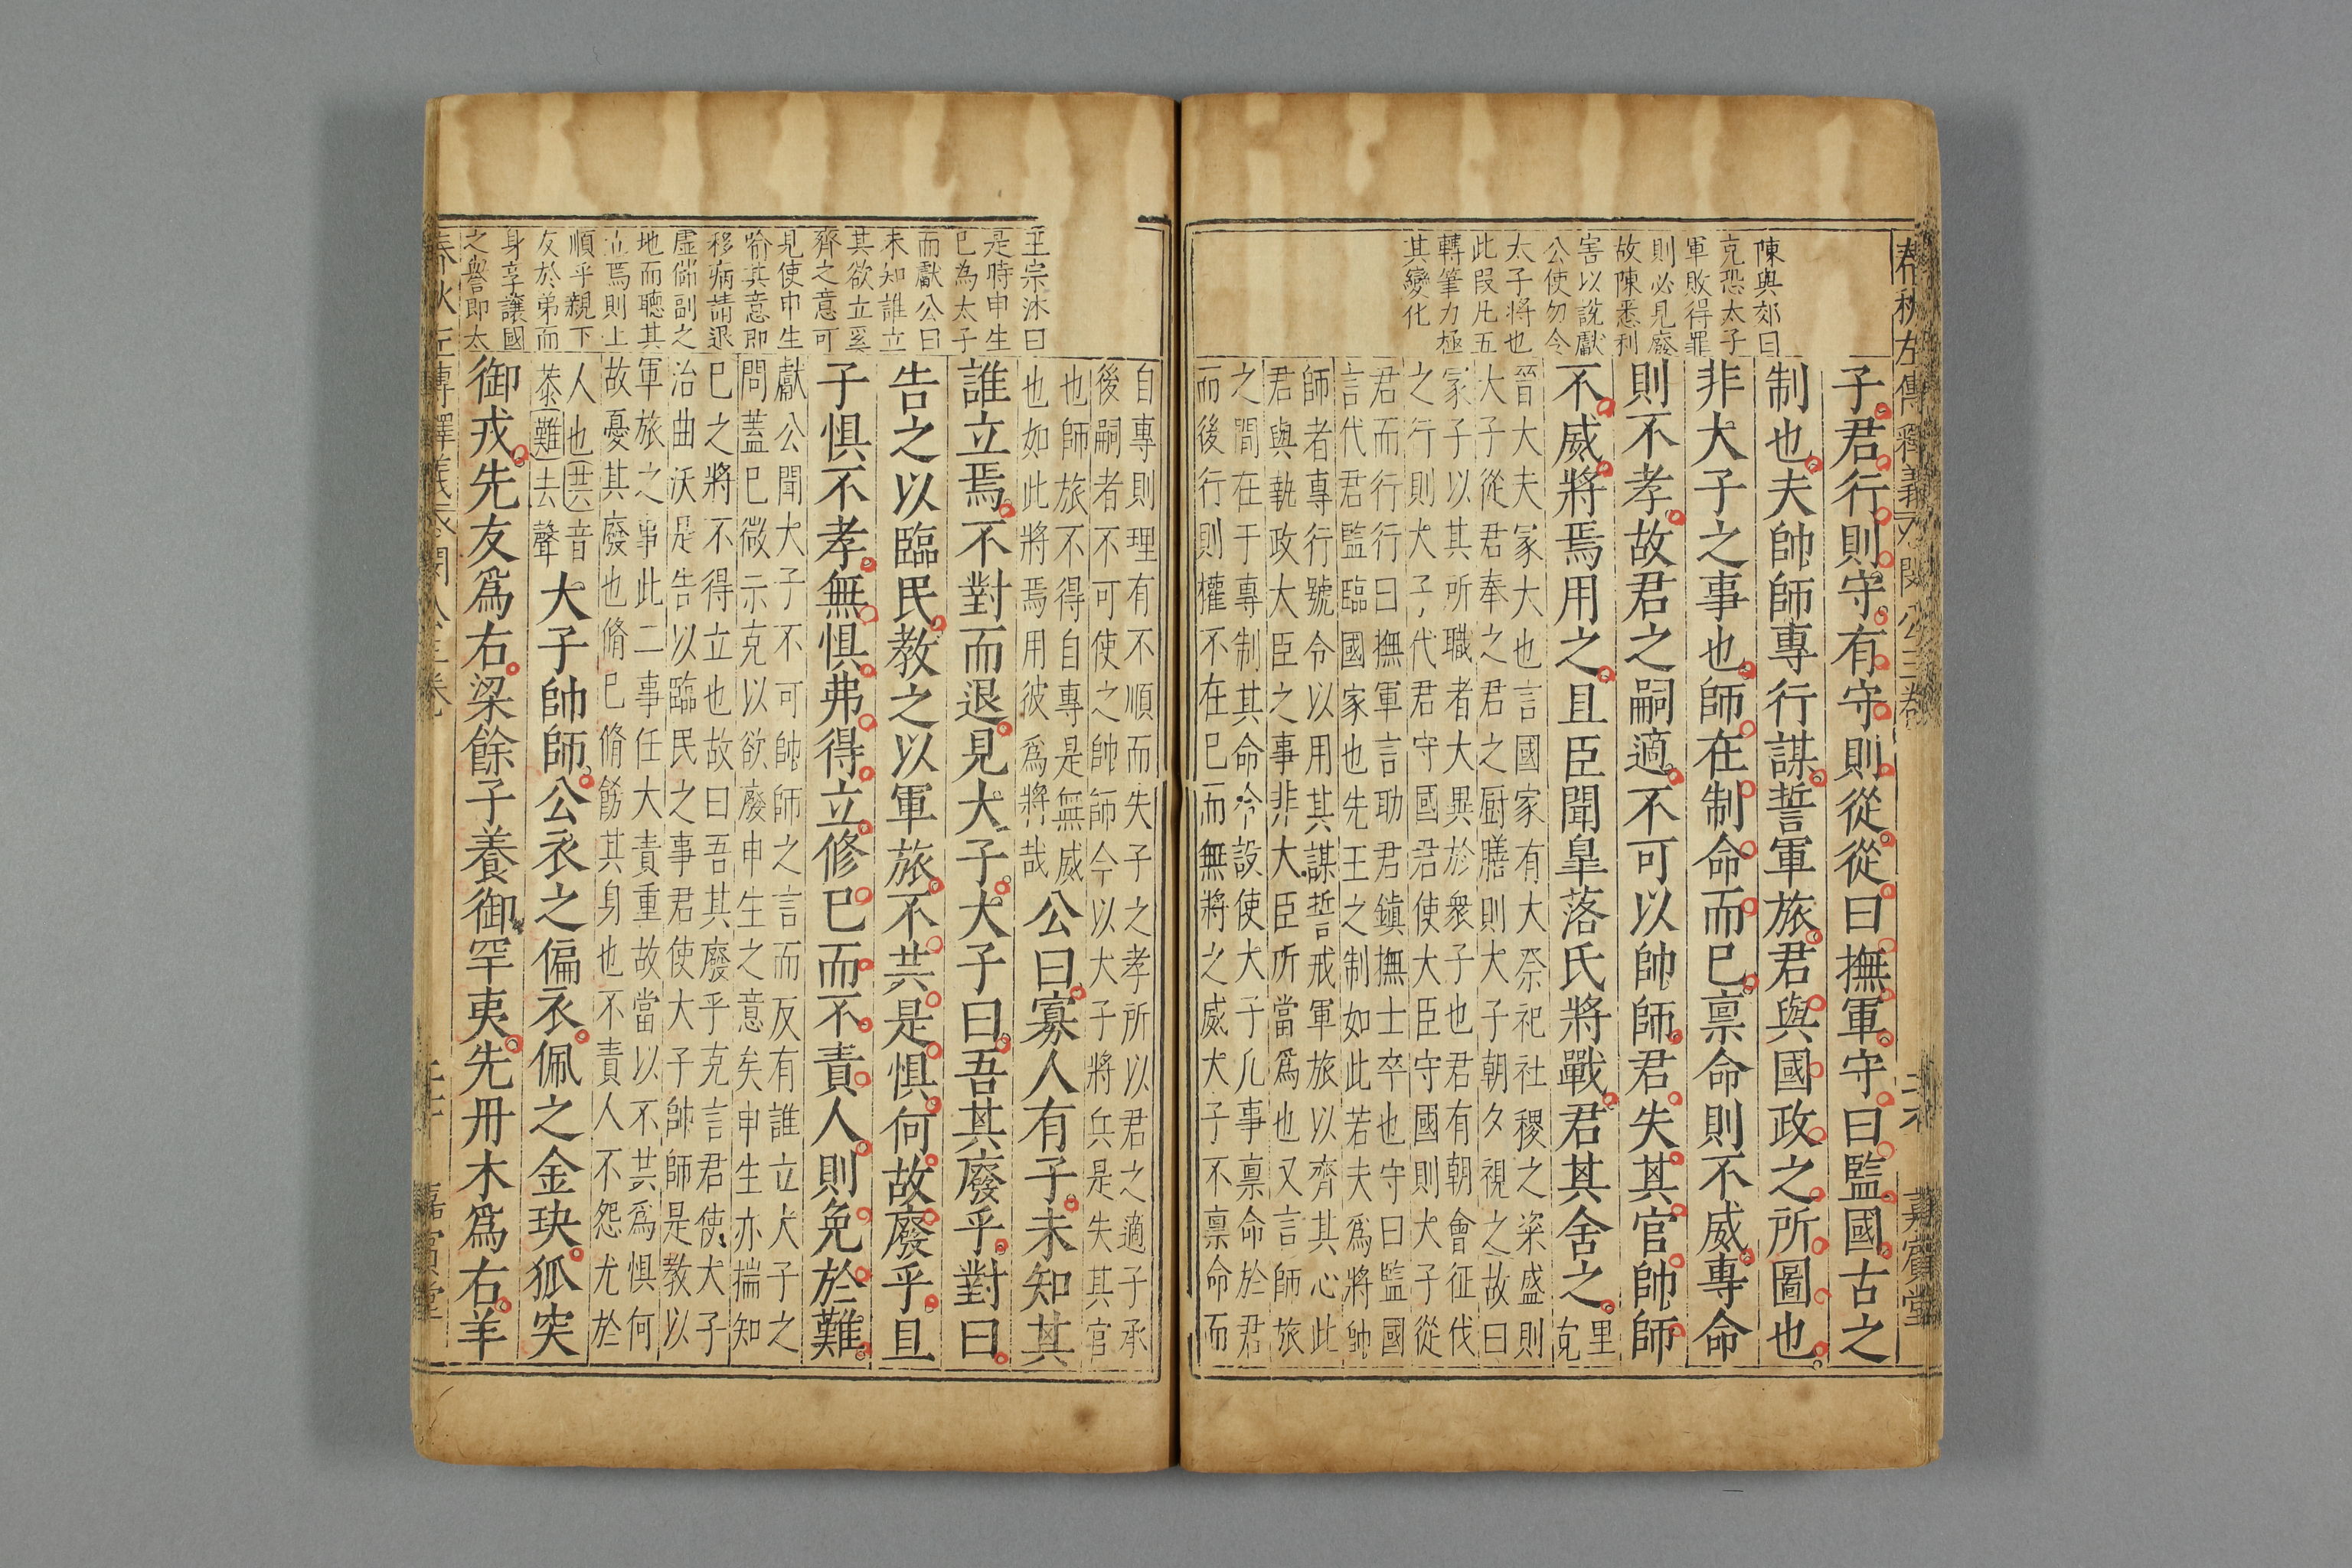 陳與郊曰
克恐太子
軍敗得罪
則必見廢
故陳悉利
害以說獻
公使勿令
太子將也
此段凡五
轉筆力極
其變化
子君行則守有守則從從曰撫軍守曰監國古之
制也夫帥師專行謀誓軍旅君與國政之所圖也
非大子之事也師在制命而已稟命則不威專命
則不孝故君之嗣適不可以帥師君失其官帥師
不威將焉用之且臣聞皐落氏將戰君其舍之里
克
晉大夫冢大也言國家有大祭祀社稷之粢盛則
大子從君奉之君之厨膳則大子朝夕視之故曰
冢子以其所職者大異於衆子也君有朝會征伐
之行則大子代君守國君使大臣守國則大子從
君而行行曰撫軍言助君鎮撫士卒也守曰監國
言代君監臨國家也先王之制如此若夫爲將帥
師者專行號令以用其謀誓戒軍旅以齊其心此
君與執政大臣之事非大臣所當爲也又言師旅
之間在于專制其命令設使大子凡事稟命於君
而後行則權不在已而無將之威大子不稟命而
自專則理有不順而失子之孝所以君之適子承
後嗣者不可使之帥師今以大子將兵是失其官
也師旅不得自專是無威
也如此將焉用彼爲將哉
王宗沐曰
是時申生
已為太子
而獻公曰
未知誰立
其欲立奚
齊之意可
見使申生
喻其意即
移病請退
虛儲副之
地而聽其
立焉則上
順乎親下
友於弟而
身享讓國
之譽即太
公曰寡人有子未知其
誰立焉不對而退見大子大子曰吾其廢乎對曰
告之以臨民教之以軍旅不共是懼何故廢乎且
子懼不孝無懼弗得立修已而不責人則免於難
獻公聞大子不可帥師之言而反有誰立大子之
問蓋已微示克以欲廢申生之意矣申生亦揣知
已之將不得立也故曰吾其廢乎克言君使大子
治曲沃是告以臨民之事君使大子帥師是教以
軍旅之事此二事任大責重故當以不共爲懼何
故憂其廢也脩已脩飭其身也不責人不怨尤於
人也共音
恭難去聲
大子帥師公衣之偏衣佩之金玦狐突
御戎先友爲右梁餘子養御罕夷先丹木爲右羊